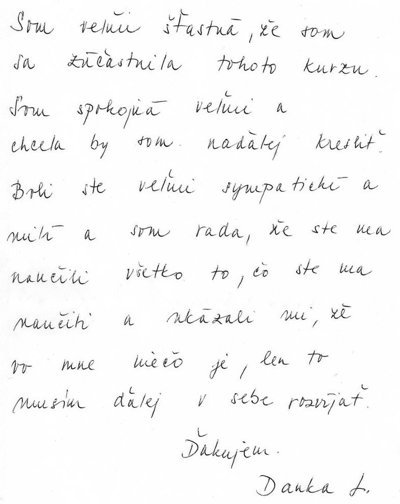 Som veľmi šťastná, že som
sa zúčastnila tohoto kurzu.
Som spokojná veľmi a
chcela by som naďalej kresliť.
Boli ste veľmi sympatickí a
milí a som rada, že ste ma
naučili všetko to, čo ste ma
naučili a ukázali mi, že
vo mne niečo je, len to
musím ďalej v sebe rozvíjať.
Ďakujem.
Danka L.